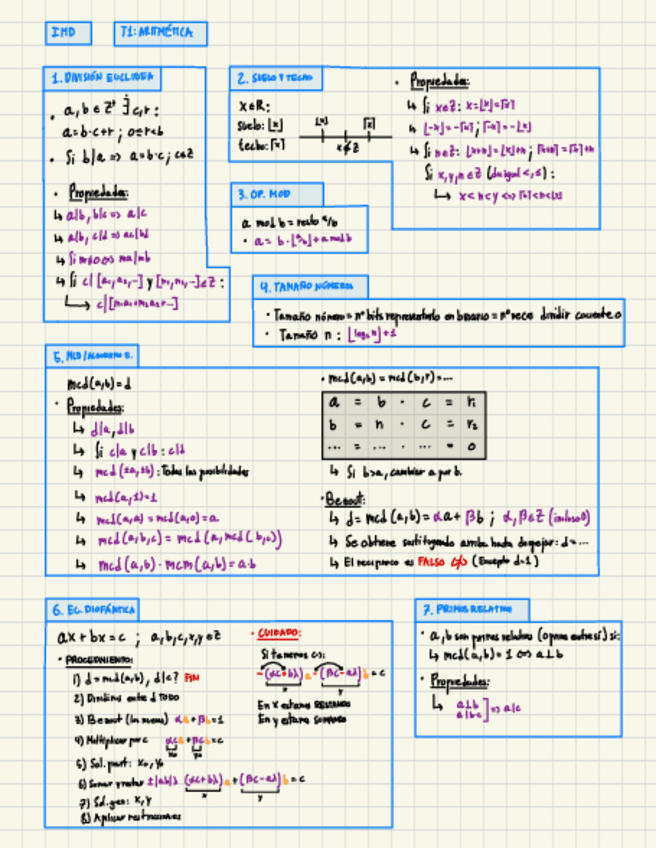 IMD
T1: ARITMÉTICA
1. DIVISIÓN EUCLIDEA
• a, b ∈ Z⁺ ∃ c, r :
a = b·c + r ; 0 ≤ r < b
• Si b|a => a = b·c ; c ∈ Z
• Propiedades:
↳ a|b, b|c => a|c
↳ a|b, c|d => ac|bd
↳ Si m≠0 => ma|mb
↳ Si c|[a₁, a₂, ...] y [m₁, m₂, ...] ∈ Z :
↳ c|[m₁a₁+m₂a₂+...]
2. SUELO Y TECHO
x ∈ R :
Suelo: ⌊x⌋
techo: ⌈x⌉
⌊x⌋ ⌈x⌉
x ∉ Z
• Propiedades:
↳ Si x ∈ Z : x = ⌊x⌋ = ⌈x⌉
↳ ⌊-x⌋ = -⌈x⌉ ; ⌈-x⌉ = -⌊x⌋
↳ Si n ∈ Z : ⌊x+n⌋ = ⌊x⌋+n ; ⌈x+n⌉ = ⌈x⌉+n
Si x, y, n ∈ Z (da igual <, ≤) :
↳ x < n < y <=> ⌈x⌉ < n < ⌊y⌋
3. OP. MOD
a mod b = resto a/b
• a = b · ⌊a/b⌋ + a mod b
4. TAMAÑO NÚMEROS
• Tamaño número = nº bits representarlo en binario = nº veces dividir cociente 0
• Tamaño n : ⌊log₂ n⌋ + 1
5. MCD / ALGORITMO E.
mcd(a,b) = d
• Propiedades:
↳ d|a, d|b
↳ Si c|a y c|b : c|d
↳ mcd(±a, ±b) : Todas las posibilidades
↳ mcd(a,1) = 1
↳ mcd(a,a) = mcd(a,0) = a
↳ mcd(a,b,c) = mcd(a, mcd(b,c))
↳ mcd(a,b) · mcm(a,b) = a·b
• mcd(a,b) = mcd(b,r) = ...
a = b · c = r₁
b = n · c = r₂
... = ... · ... = 0
↳ Si b>a, cambiar a por b.
• Bezout:
↳ d = mcd(a,b) = αa + βb ; α, β ∈ Z (incluso 0)
↳ Se obtiene sustituyendo arriba hasta despejar : d = ...
↳ El recíproco es FALSO (Excepto d=1)
6. EC. DIOFÁNTICA
ax + bx = c ; a, b, c, x, y ∈ Z
• PROCEDIMIENTO:
1) d = mcd(a,b), d|c? FIN
2) Dividimos entre d TODO
3) Bezout (los nuevos) αa + βb = 1
4) Multiplicar por c αca + βcb = c
x₀ y₀
5) Sol. part: x₀, y₀
6) Sumar y restar ±|ab|λ (αc+bλ)a + (βc-aλ)b = c
x y
7) Sol. gen: x, y
8) Aplicar restricciones
• CUIDADO:
Si tenemos (-):
-(αc+bλ)a -(βc-aλ)b = c
x y
En x estamos RESTANDO
En y estamos SUMANDO
7. PRIMOS RELATIVO
• a, b son primos relativos (o primos entre sí) si:
↳ mcd(a,b) = 1 <=> a⊥b
• Propiedades:
↳ a⊥b
a|bc ] => a|c